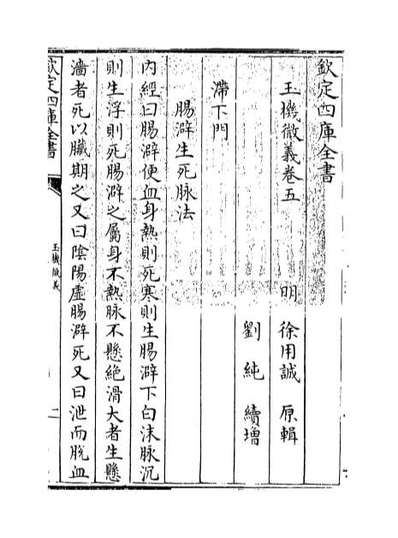 欽定四庫全書
玉機微義卷五
明 徐用誠 原輯
劉純 續增
滯下門
腸澼生死脉法
内經曰腸澼便血身熱則死寒則生腸澼下白沫脉沉
則生浮則死腸澼之屬身不熱脉不懸絶滑大者生懸
濇者死以臟期之又曰陰陽虛腸澼死又曰泄而脫血
欽定四庫全書
玉機微義
二